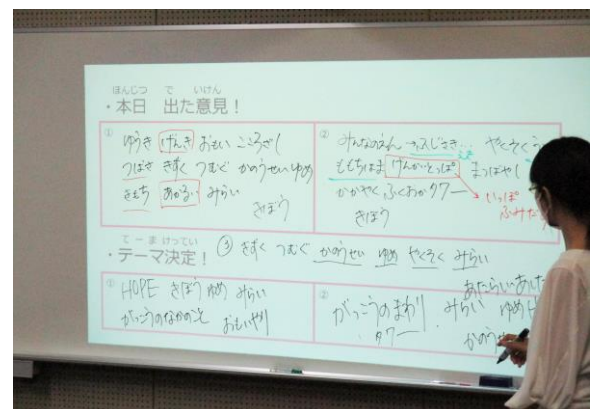 ほんじつ で いけん
・本日 出た意見！
①
ゆうき げんき おもい こころざし
つばさ きずく つむぐ かのうせい ゆめ
きもち あかるい みらい
きぼう
②
みんなのえん すじさき… やくそく
ももちはま げんかいとっぱ まつばやし
かがやく ふくおかタワー
きぼう
いっぽ
ふみだ
てーまけってい
・テーマ決定！ ③ きずく つむぐ かのうせい ゆめ やくそく みらい
①
HOPE きぼう ゆめ みらい
がっこうのなかのこと おもいやり
②
あたらしいあした
がっこうのまわり みらい ゆめ
タワー かのう